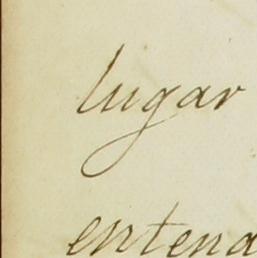 lugar
entend